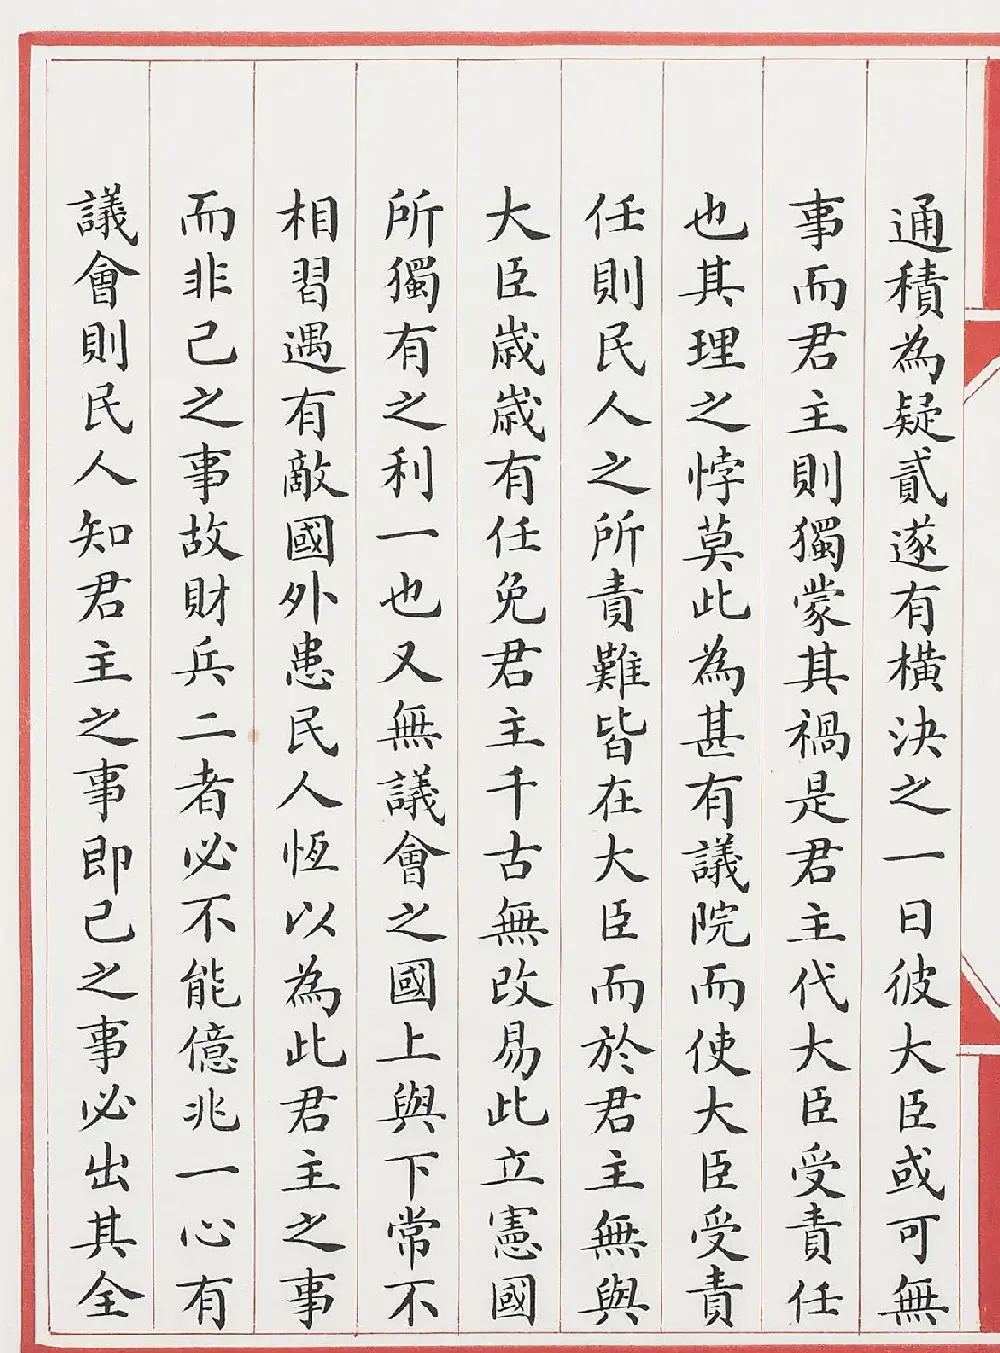 通積為疑貳遂有橫決之一日彼大臣或可無
事而君主則獨蒙其禍是君主代大臣受責任
也其理之悖莫此為甚有議院而使大臣受責
任則民人之所責難皆在大臣而於君主無與
大臣歳歳有任免君主千古無改易此立憲國
所獨有之利一也又無議會之國上與下常不
相習遇有敵國外患民人恆以為此君主之事
而非己之事故財兵二者必不能億兆一心有
議會則民人知君主之事即己之事必出其全